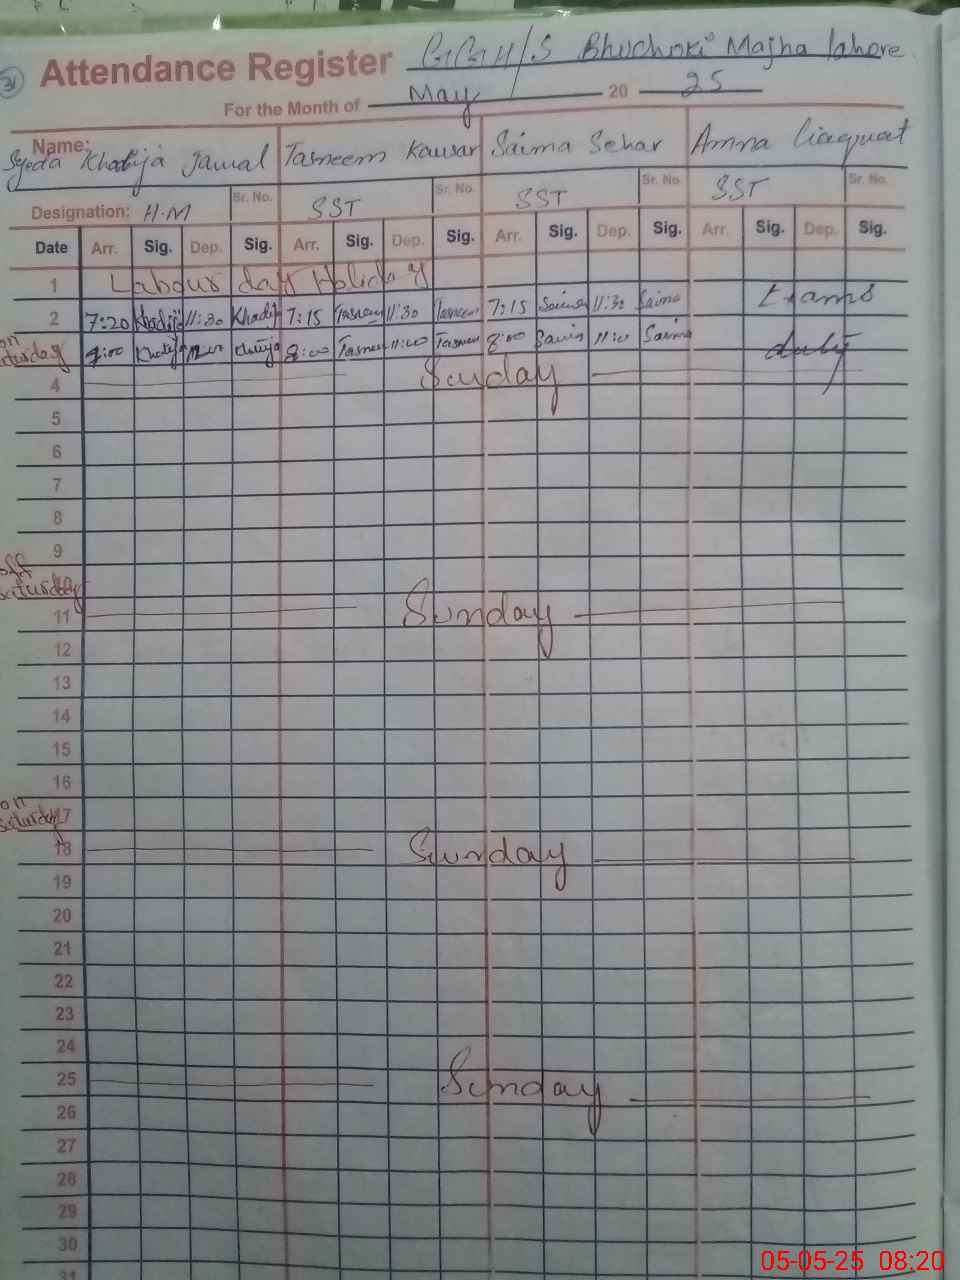 31 Attendance Register GGH/S Bhuchoki Majha lahore.
For the Month of May 20 25
Name: Syeda Khatija Jamal Tasneem Kausar Saima Sehar Amna liaquat
Designation: H.M Sr. No. SST Sr. No. SST Sr. No. SST Sr. No.
Date Arr. Sig. Dep. Sig. Arr. Sig. Dep. Sig. Arr. Sig. Dep. Sig. Arr. Sig. Dep. Sig.
1 Labour day Holiday
2 7:20 Khadija 11:30 Khadij 7:15 Tasneem 11:30 Tasneem 7:15 Saima 11:30 Saima Exams
on Saturday 8:00 Tasnee 11:00 Tasneem 8:00 11:00 Saima duty
4 Sunday
5
6
7
8
9
off saturday 10
11 Sunday
12
13
14
15
16
on saturday 17
18 Sunday
19
20
21
22
23
24
25 Sunday
26
27
28
29
30
31
05-05-25 08:20